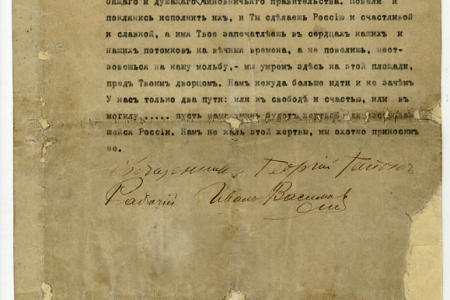 бщаго и душащаго чиновничьяго правительства. Повели и
поклянись исполнить их, и Ты сделаешь Россію и счастливой
и славной, а имя Твое запечатлеешь в сердцах наших и
наших потомков на вечныя времена, а не повелишь, неот-
зовешься на нашу мольбу,- мы умрем здесь на этой площади,
пред Твоим дворцом. Нам некуда больше идти и не зачем
У нас только два пути: или к свободе и счастью, или в
могилу...... пусть наша жизнь будет жертвой для
шейся Россіи. Нам не жаль этой жертвы, мы охотно приносим
ее.
Священник Георгій Гапон
Рабочій Иван Васимов